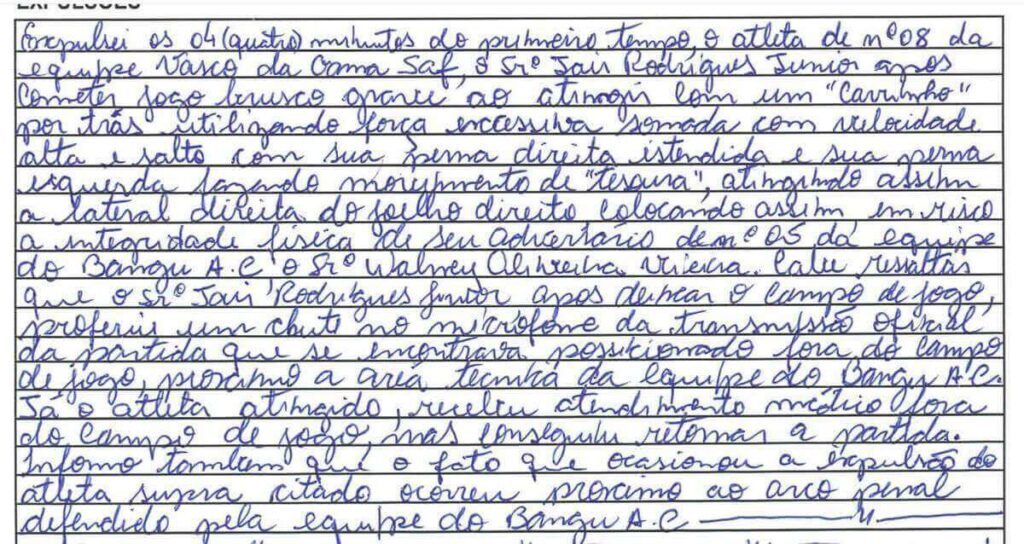 EXPULSÕES
Expulsei os 04 (quatro) minutos do primeiro tempo, o atleta de nº 08 da
equipe Vasco da Gama Saf, o Srº Jair Rodrigues Junior apos
cometer jogo brusco grave ao atingir com um "Carrinho"
por trás utilizando força excessiva somada com velocidade
alta e salto com sua perna direita istendida e sua perna
esquerda fazendo movimento de "tesoura", atingindo assim
a lateral direita do joelho direito, colocando assim, em risco
a integridade física de seu advertário de nº 05 da equipe
do Bangu A.C o Srº Walney Oliveira Vieira. Cabe ressaltar
que o Srº Jair Rodrigues Junior apos deixar o campo de jogo,
proferiu um chute no microfone da transmissão oficial
da partida que se encontrava posicionado fora do campo
de jogo, proximo a area tecnica da equipe do Bangu A.C.
Já o atleta atingido, recebeu atendimento médico fora
do campo de jogo, mas conseguiu retornar a partida.
Informo tambem que o fato que ocasionou a expulsão do
atleta supra citado ocorreu proximo ao arco penal
defendido pela equipe do Bangu A.C